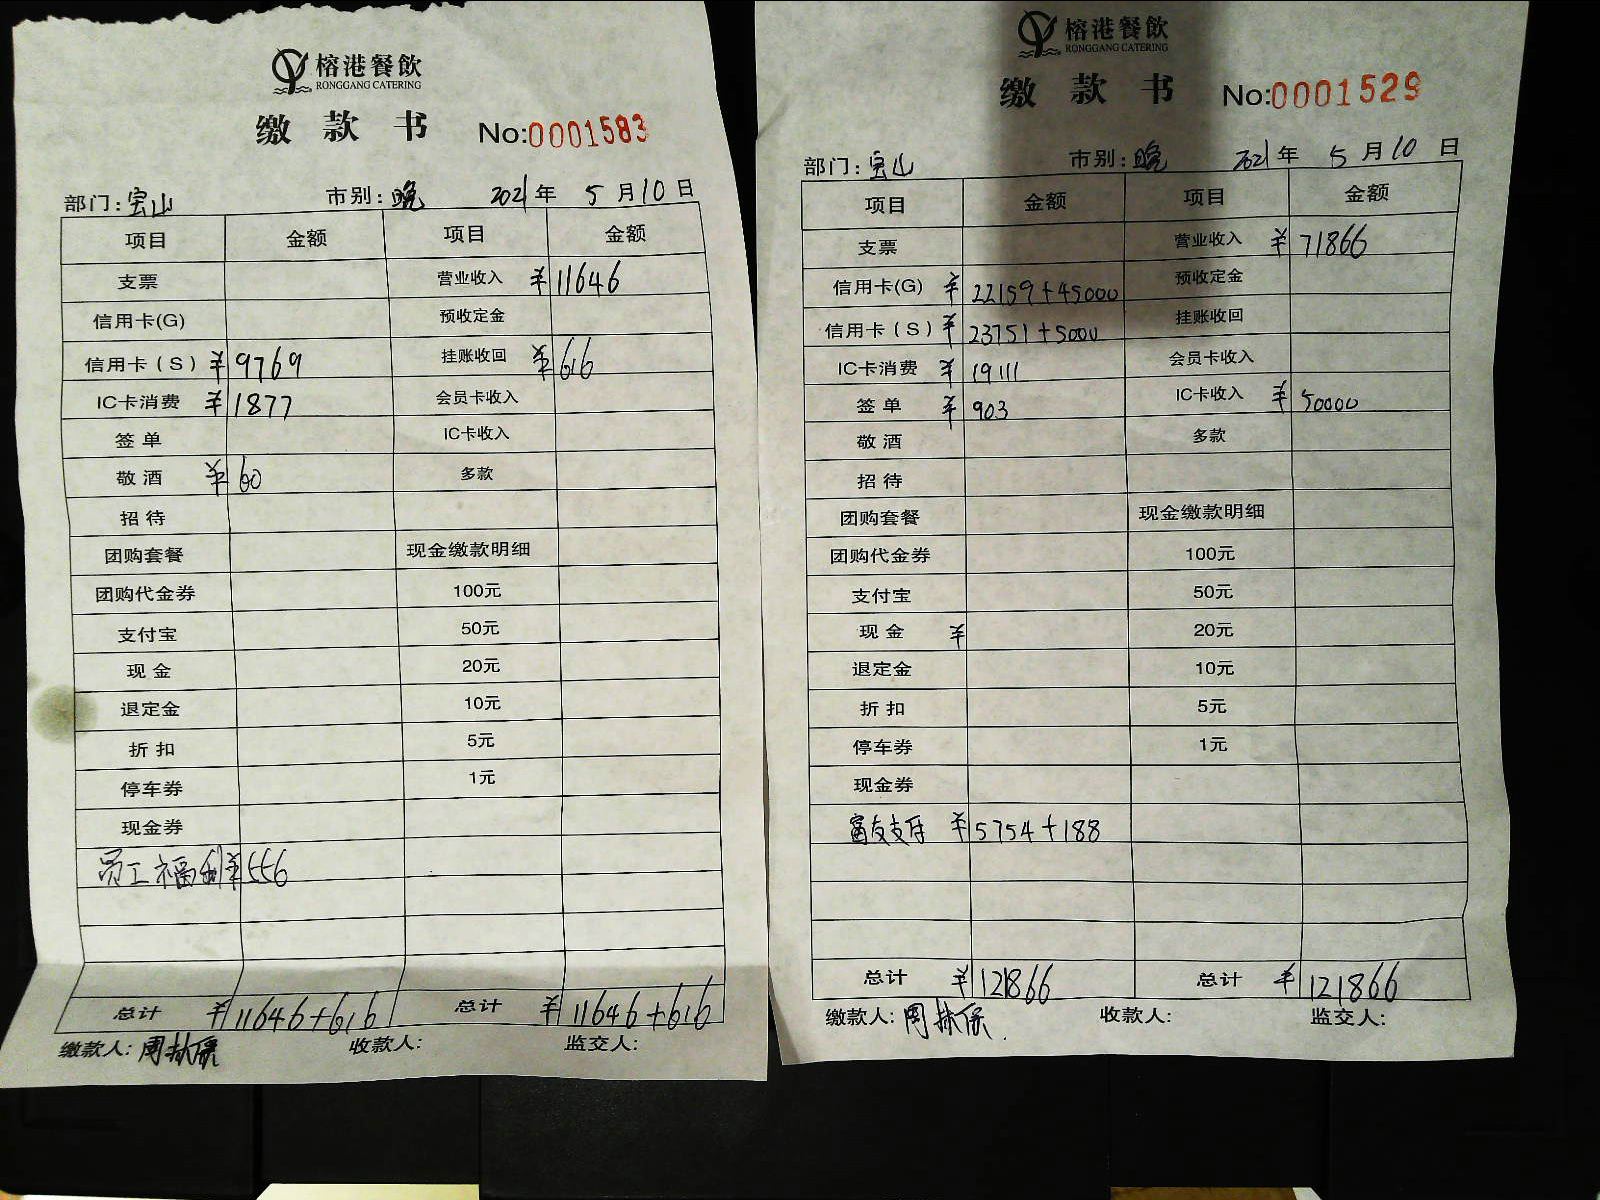 榕港餐飲
RONGGANG CATERING
缴款书 No:0001583
部门:宝山 市别:晚 2021年 5月10日
项目 金额 项目 金额
支票 营业收入 ¥11646
信用卡(G) 预收定金
信用卡(S) ¥9769 挂账收回 ¥616
IC卡消费 ¥1877 会员卡收入
签单 IC卡收入
敬酒 ¥60 多款
招待
团购套餐 现金缴款明细
团购代金券 100元
支付宝 50元
现金 20元
退定金 10元
折扣 5元
停车券 1元
现金券
员工福利 ¥556
总计 ¥11646+616 总计 ¥11646+616
缴款人:周林保 收款人: 监交人:
榕港餐飲
RONGGANG CATERING
缴款书 No:0001529
部门:宝山 市别:晚 2021年 5月10日
项目 金额 项目 金额
支票 营业收入 ¥71866
信用卡(G) ¥22159+45000 预收定金
信用卡(S) ¥23751+5000 挂账收回
IC卡消费 ¥19111 会员卡收入
签单 ¥903 IC卡收入 ¥50000
敬酒 多款
招待
团购套餐 现金缴款明细
团购代金券 100元
支付宝 50元
现金 ¥ 20元
退定金 10元
折扣 5元
停车券 1元
现金券
富友支付 ¥5754+188
总计 ¥121866 总计 ¥121866
缴款人:周林保 收款人: 监交人: